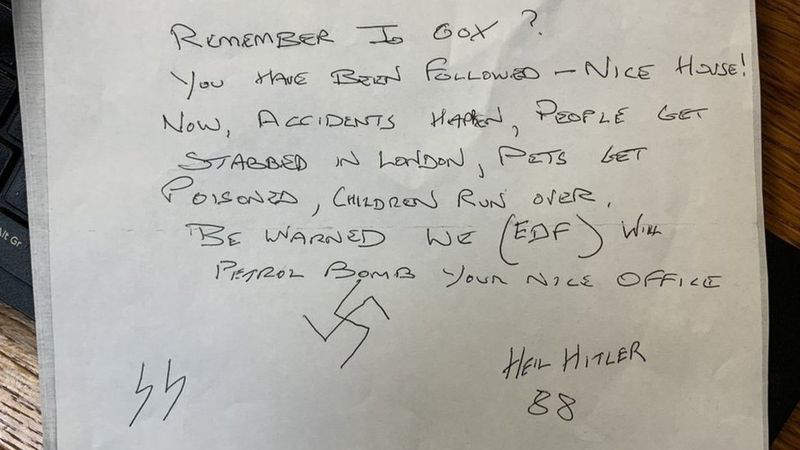 REMEMBER Jo COX?
YOU HAVE BEEN FOLLOWED - NICE HOUSE!
NOW, ACCIDENTS HAPPEN, PEOPLE GET
STABBED IN LONDON, PETS GET
POISONED, CHILDREN RUN OVER.
BE WARNED WE (EDF) WILL
PETROL BOMB YOUR NICE OFFICE
HEIL HITLER
88
Alt Gr